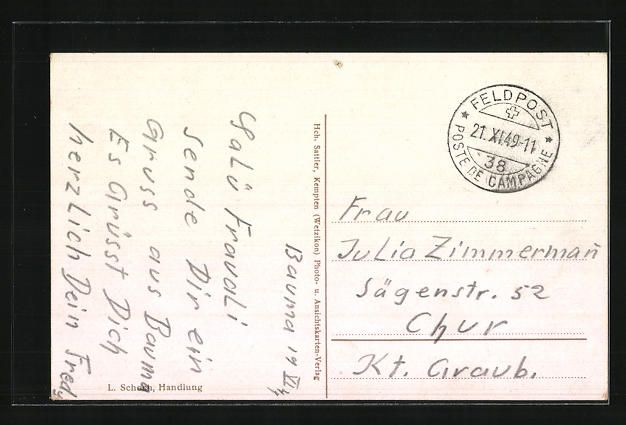 Bauma 19
Salü Fraueli
sende Dir ein
Gruss aus Bauma
Es Grüsst Dich
herzlich Dein Fredy
L. Schoch, Handlung
Hch. Sattler, Kempten (Wetzikon) Photo- u. Ansichtskarten-Verlag
FELDPOST
21.XI.49-11
38
POSTE DE CAMPAGNE
Frau
Julia Zimmermañ
Sägenstr. 52
Chur
Kt. Graub.